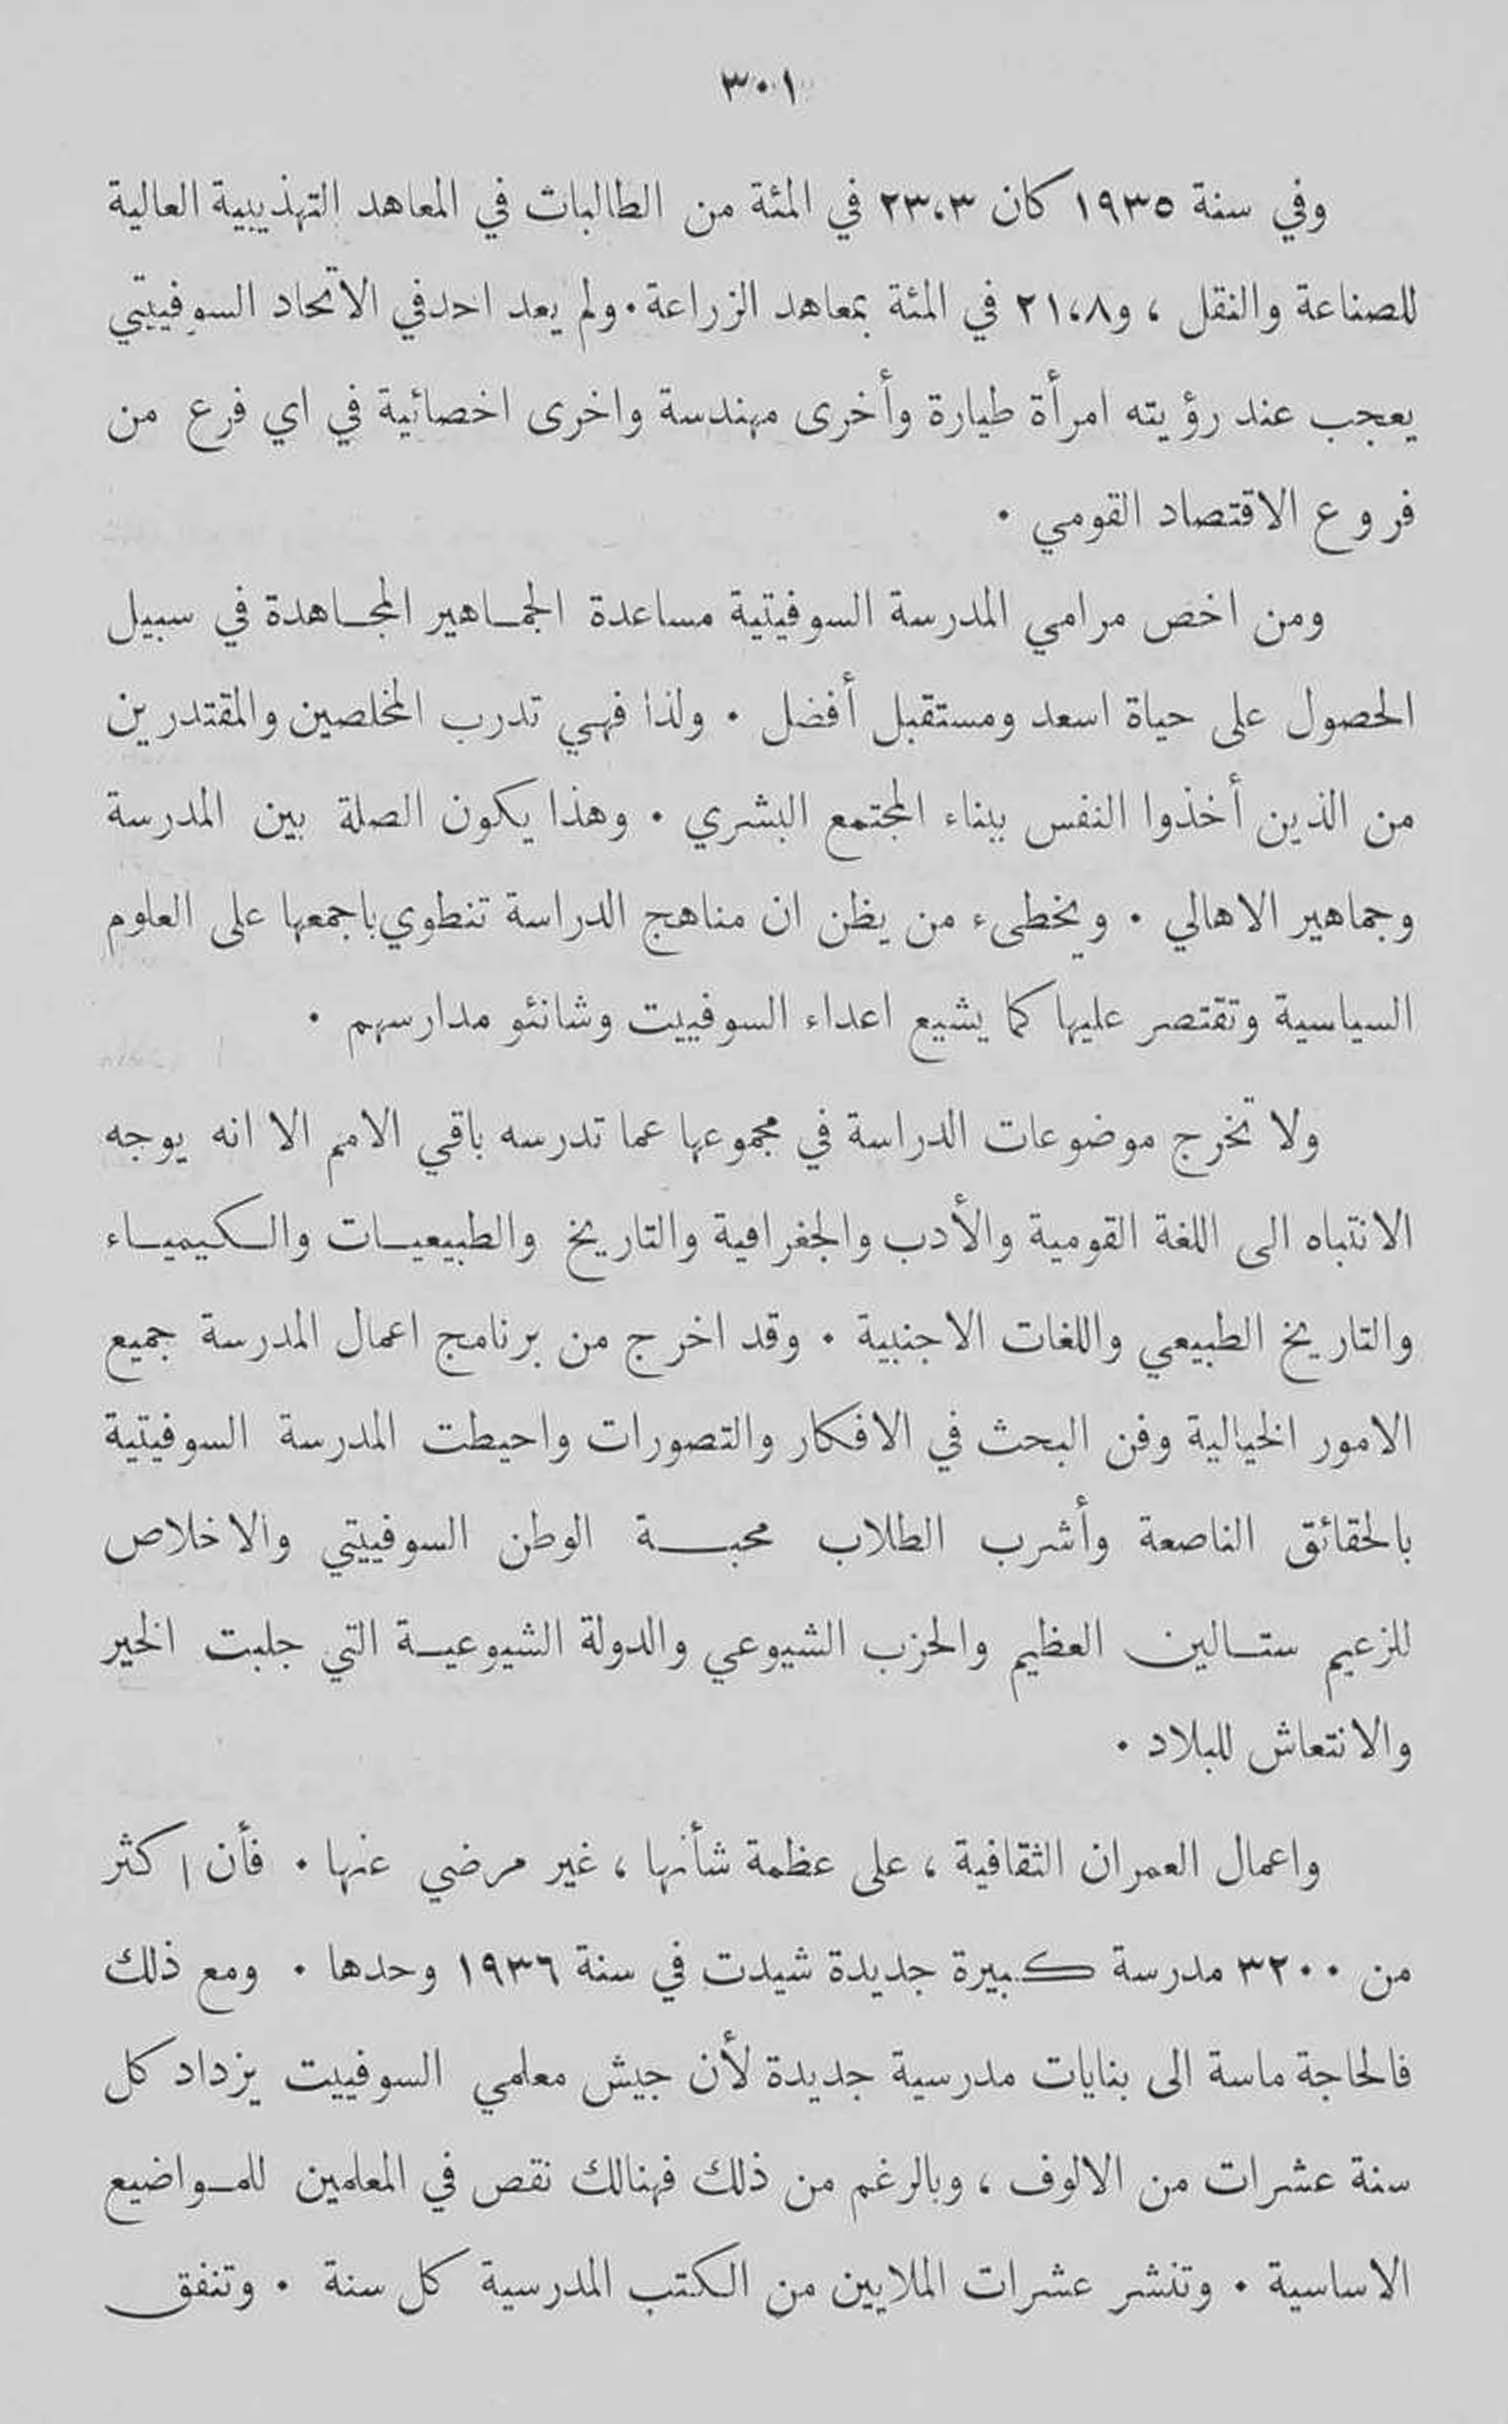 ٣٠١
وفي سنة ١٩٣٥ كان ٢٣،٣ في المئة من الطالبات في المعاهد التهذيبية العالية
للصناعة والنقل ، و٢١،٨ في المئة بمعاهد الزراعة . ولم يعد احد في الاتحاد السوفييتي
يعجب عند رؤيته امرأة طيارة وأخرى مهندسة واخرى اخصائية في اي فرع من
فروع الاقتصاد القومي .
ومن اخص مرامي المدرسة السوفيتية مساعدة الجماهير المجاهدة في سبيل
الحصول على حياة اسعد ومستقبل أفضل . ولذا فهي تدرب المخلصين والمقتدرين
من الذين أخذوا النفس ببناء المجتمع البشري . وهذا يكون الصلة بين المدرسة
وجماهير الاهالي . ويخطىء من يظن ان مناهج الدراسة تنطوي باجمعها على العلوم
السياسية وتقتصر عليها كما يشيع اعداء السوفييت وشانئو مدارسهم .
ولا تخرج موضوعات الدراسة في مجموعها عما تدرسه باقي الامم الا انه يوجه
الانتباه الى اللغة القومية والأدب والجغرافية والتاريخ والطبيعيات والكيمياء
والتاريخ الطبيعي واللغات الاجنبية . وقد اخرج من برنامج اعمال المدرسة جميع
الامور الخيالية وفن البحث في الافكار والتصورات واحيطت المدرسة السوفيتية
بالحقائق الناصعة وأشرب الطلاب محبة الوطن السوفييتي والاخلاص
للزعيم ستالين العظيم والحزب الشيوعي والدولة الشيوعية التي جلبت الخير
والانتعاش للبلاد .
واعمال العمران الثقافية ، على عظمة شأنها ، غير مرضي عنها . فأن اكثر
من ٣٢٠٠ مدرسة كبيرة جديدة شيدت في سنة ١٩٣٦ وحدها . ومع ذلك
فالحاجة ماسة الى بنايات مدرسية جديدة لأن جيش معلمي السوفييت يزداد كل
سنة عشرات من الالوف ، وبالرغم من ذلك فهنالك نقص في المعلمين للمواضيع
الاساسية . وتنشر عشرات الملايين من الكتب المدرسية كل سنة . وتنفق